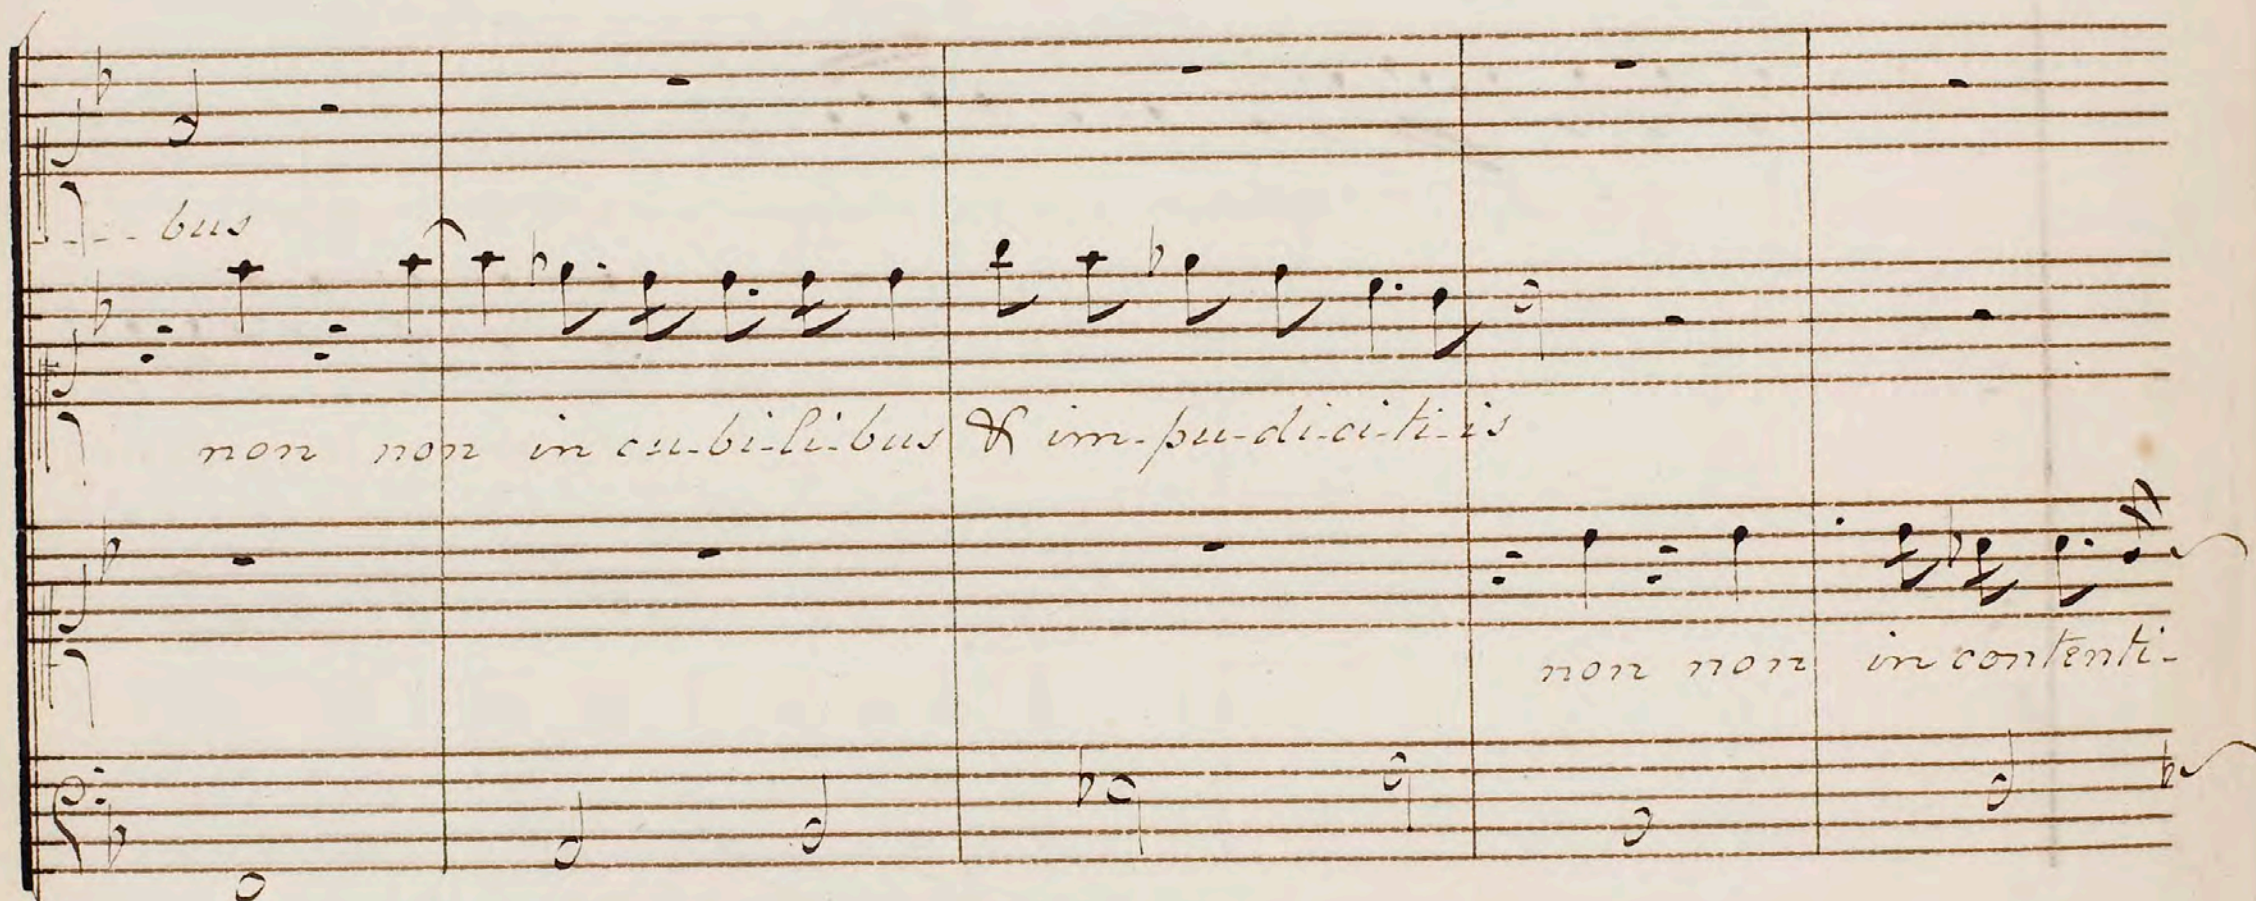 - - - bus
non non in cu-bi-li-bus & im-pu-di-ci-ti-is
non non in contenti-